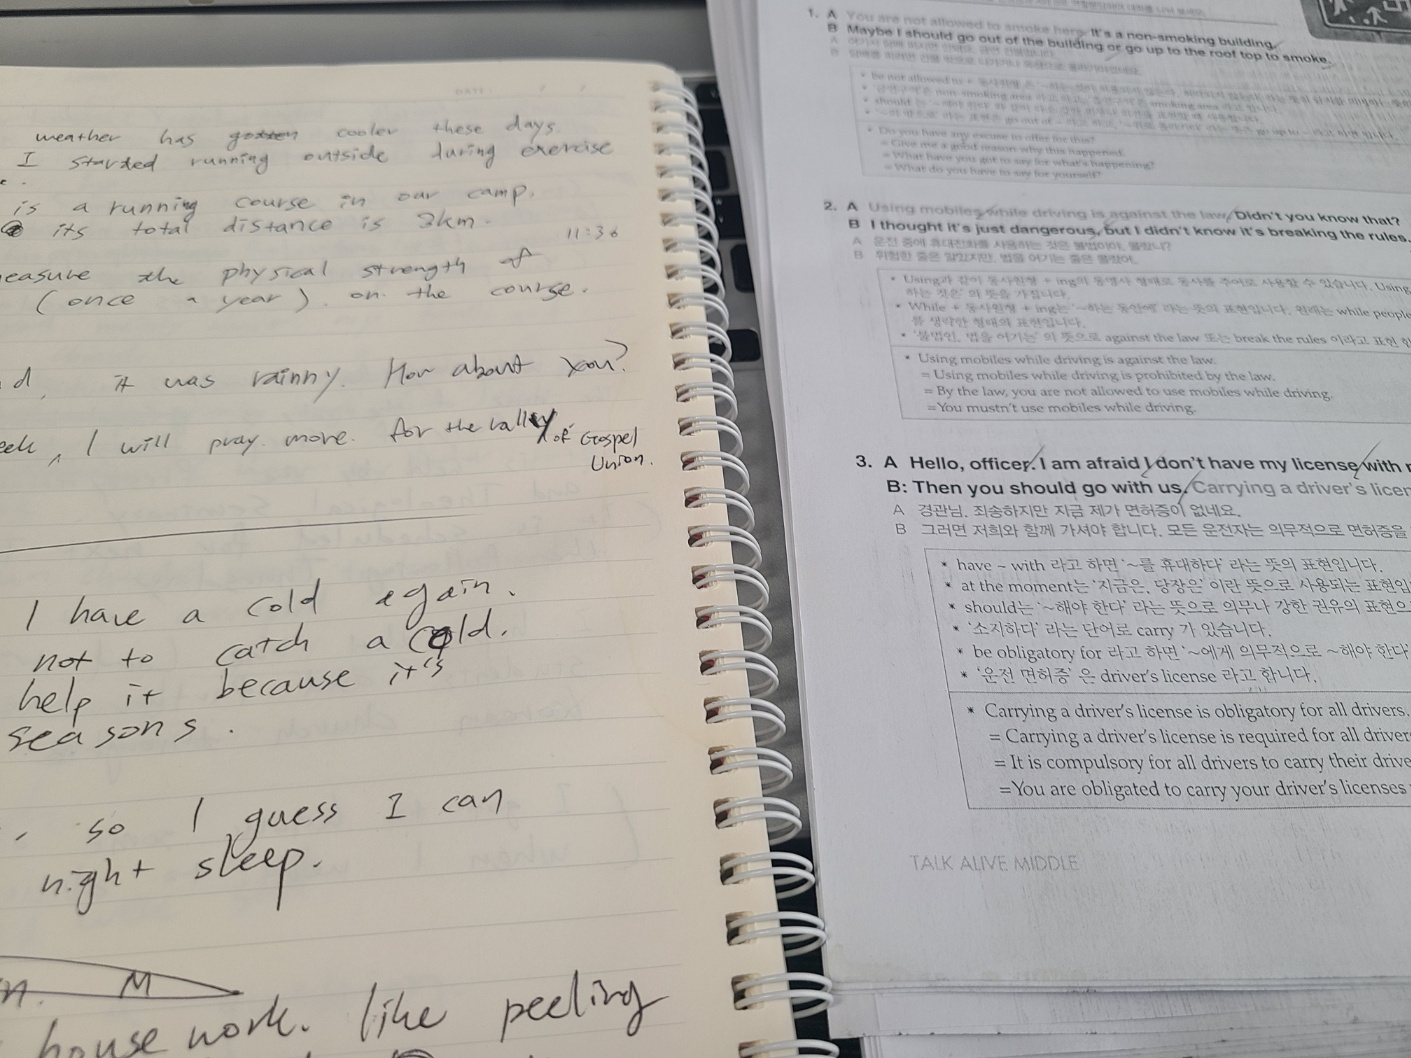 weather has gotten cooler these days.
I starded running outside during exercise
is a running course in our camp.
its total distance is 2km.
11:36
easure the physical strength of
(once a year). on the course.
d, it was rainny. How about you?
eek, I will pray more. for the rally of Gospel
Union.
I have a cold again.
not to catch a cold.
help it because it's
seasons.
, so I guess I can
night sleep.
n. M
house work. like peeling
1. A You are not allowed to smoke here. It's a non-smoking building.
B Maybe I should go out of the building or go up to the roof top to smoke.
* Do you have any excuse to offer for this?
= Give me a good reason why this happened.
= What have you got to say for what's happening?
= What do you have to say for yourself?
2. A Using mobiles while driving is against the law. Didn't you know that?
B I thought it's just dangerous, but I didn't know it's breaking the rules.
A 운전 중에 휴대전화를 사용하는 것은 불법이야. 몰랐니?
B 위험한 줄은 알았지만, 법을 어기는 줄은 몰랐어.
* Using과 같이 동사원형 + ing의 동명사 형태로 동사를 주어로 사용할 수 있습니다. Using
하는 것은' 의 뜻을 가집니다.
* While + 동사원형 + ing는 '~하는 동안에' 라는 뜻의 표현입니다. 원래는 while people
를 생략한 형태의 표현입니다.
* '불법인, 법을 어기는' 의 뜻으로 against the law 또는 break the rules 이라고 표현
* Using mobiles while driving is against the law.
= Using mobiles while driving is prohibited by the law.
= By the law, you are not allowed to use mobiles while driving.
= You mustn't use mobiles while driving.
3. A Hello, officer. I am afraid I don't have my license with
B: Then you should go with us. Carrying a driver's licen
A 경관님. 죄송하지만 지금 제가 면허증이 없네요.
B 그러면 저희와 함께 가셔야 합니다. 모든 운전자는 의무적으로 면허증을
* have ~ with 라고 하면 '~를 휴대하다' 라는 뜻의 표현입니다.
* at the moment는 '지금은, 당장은' 이란 뜻으로 사용되는 표현입
* should는 '~해야 한다' 라는 뜻으로 의무나 강한 권유의 표현으
* '소지하다' 라는 단어로 carry 가 있습니다.
* be obligatory for 라고 하면 '~에게 의무적으로 ~해야 한다'
* '운전 면허증' 은 driver's license 라고 합니다.
* Carrying a driver's license is obligatory for all drivers.
= Carrying a driver's license is required for all driver
= It is compulsory for all drivers to carry their drive
= You are obligated to carry your driver's licenses
TALK ALIVE MIDDLE